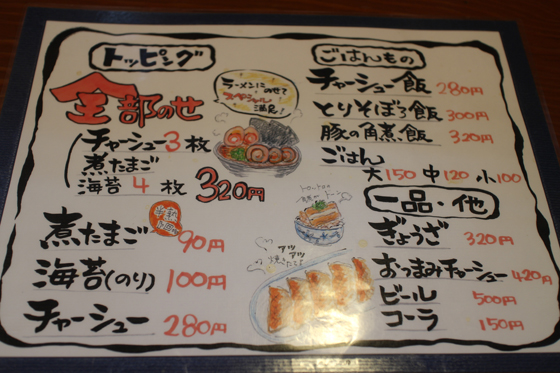 トッピング
全部のせ
チャーシュー3枚
煮たまご
海苔4枚
320円
ラーメンに
のせて
スペシャル
満足!
煮たまご 90円
海苔(のり) 100円
チャーシュー 280円
アツ
アツ
ごはんもの
チャーシュー飯 280円
とりそぼろ飯 300円
豚の角煮飯 320円
ごはん
大150 中120 小100
一品・他
ぎょうざ 320円
おつまみチャーシュー 420円
ビール 500円
コーラ 150円